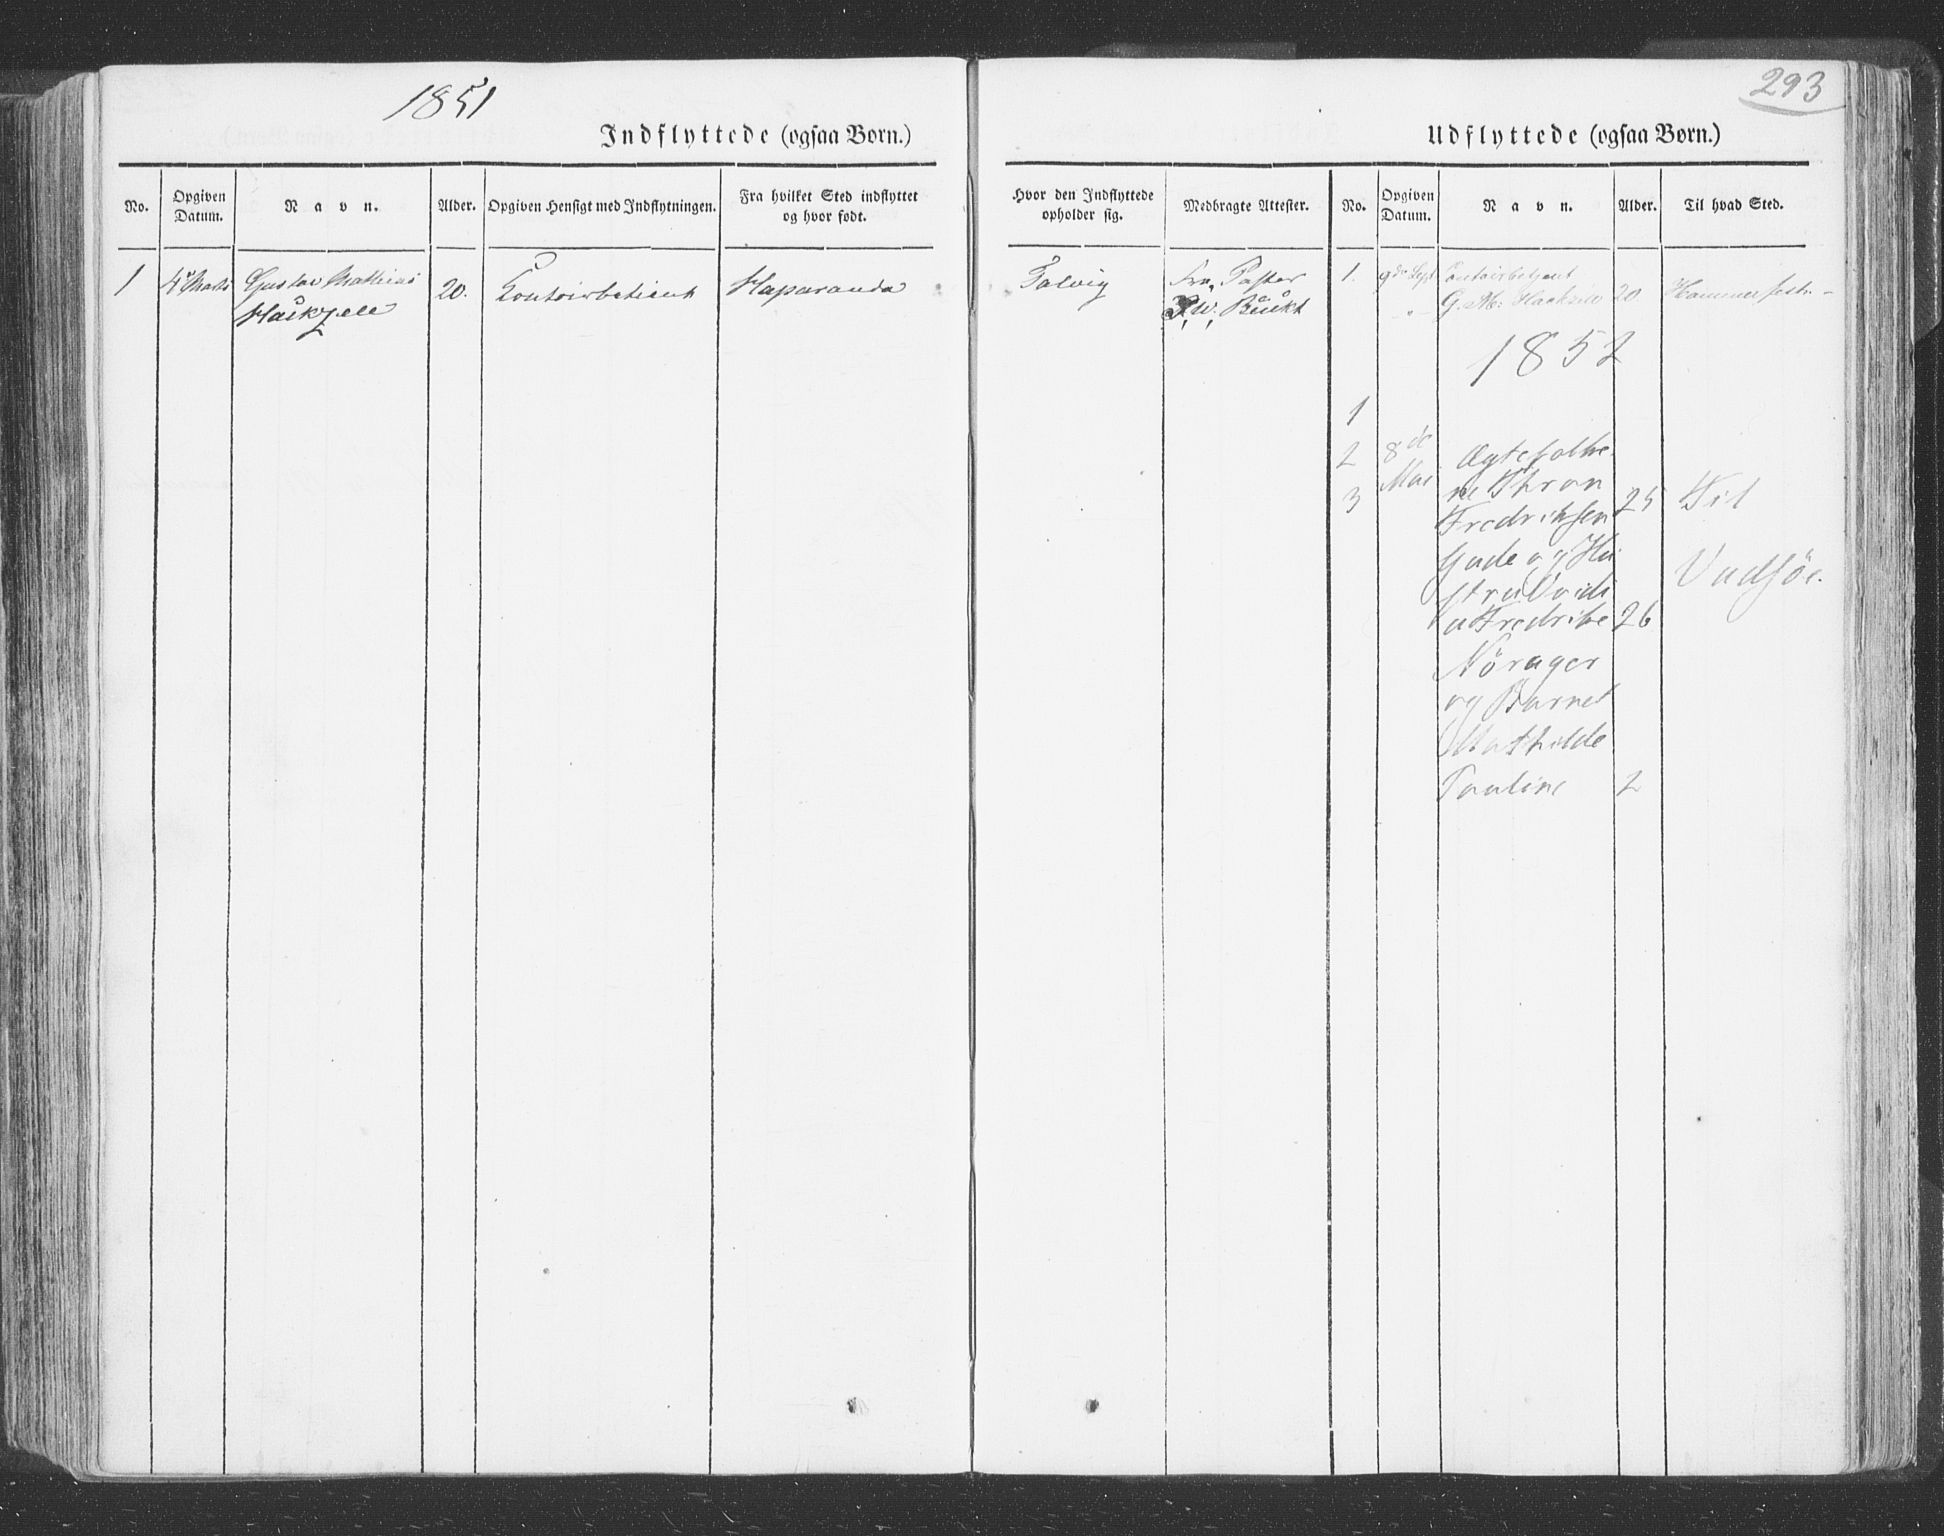 1851
Indflyttede (ogsaa Børn.)
No.
Opgiven
Datum.
Navn.
Alder.
Opgiven Hensigt med Indflytningen.
Fra hvilket Sted indflyttet
og hvor født.
1
4 Marts
Gustav Mathias
Hackzell
20.
Contoirbetient
Haparanda
293
Udflyttede (ogsaa Børn.)
Hvor den Indflyttede
opholder sig.
Medbragte Attester.
No.
Opgiven
Datum.
Navn.
Alder.
Til hvad Sted.
Talvig
Fra Pastor
1.
9de Sept
Contoirbetjent
G. M. Hackzell
20
Hammerfest
1852
1
2
3
8de
Mai
Ægtefolke
ne Thron
Fredriksen
25
Til
Gade og Hu
stru
Vadsöe.
a Fredrike
26
Nörager
og Barnet
Mathilde
Pauline
2